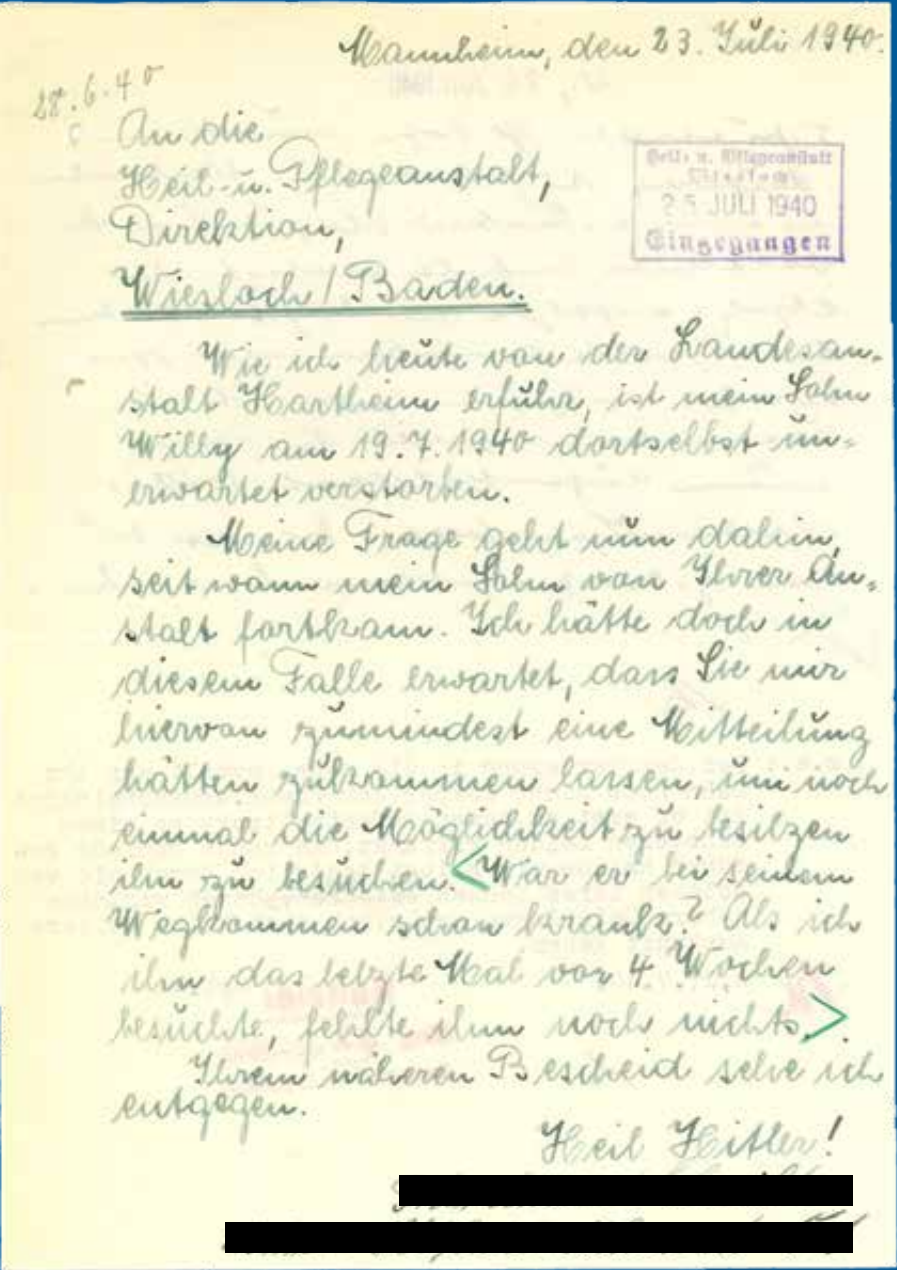 Mannheim, den 23. Juli 1940.
28.6.40
An die
Heil- u. Pflegeanstalt,
Direktion,
Wiesloch / Baden.
Heil- u. Pflegeanstalt
Wiesloch
25 JULI 1940
Eingegangen
Wie ich heute von der Landesan-
stalt Hartheim erfuhr, ist mein Sohn
Willy am 19.7.1940 dortselbst un-
erwartet verstorben.
Meine Frage geht nun dahin,
seit wann mein Sohn von Ihrer An-
stalt fortkam. Ich hätte doch in
diesem Falle erwartet, dass Sie mir
hiervon zumindest eine Mitteilung
hätten zukommen lassen, um noch
einmal die Möglichkeit zu besitzen
ihn zu besuchen. < War er bei seinem
Wegkommen schon krank? Als ich
ihn das letzte Mal vor 4 Wochen
besuchte, fehlte ihm noch nichts. >
Ihrem näheren Bescheid sehe ich
entgegen.
Heil Hitler!